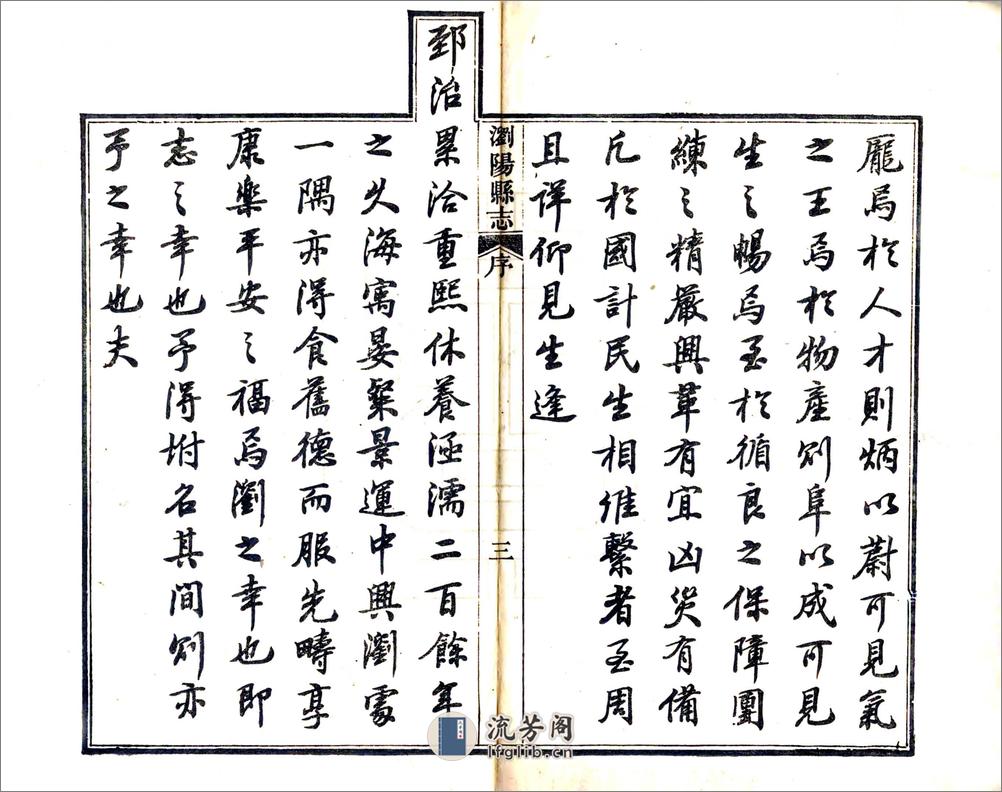 龐焉於人才則炳以蔚可見氣
之王焉於物產則阜以成可見
生之暢焉至於循良之保障團
練之精嚴興革有宜凶災有備
凡於國計民生相維繫者至周
且詳仰見生逢
瀏陽縣志 序 三
郅治累洽重熙休養涵濡二百餘年
之久海㝢晏粲景運中興瀏處
一隅亦得食舊德而服先疇享
康樂平安之福焉瀏之幸也即
志之幸也予得坿名其間則亦
予之幸也夫
流芳阁
lfglib.cn